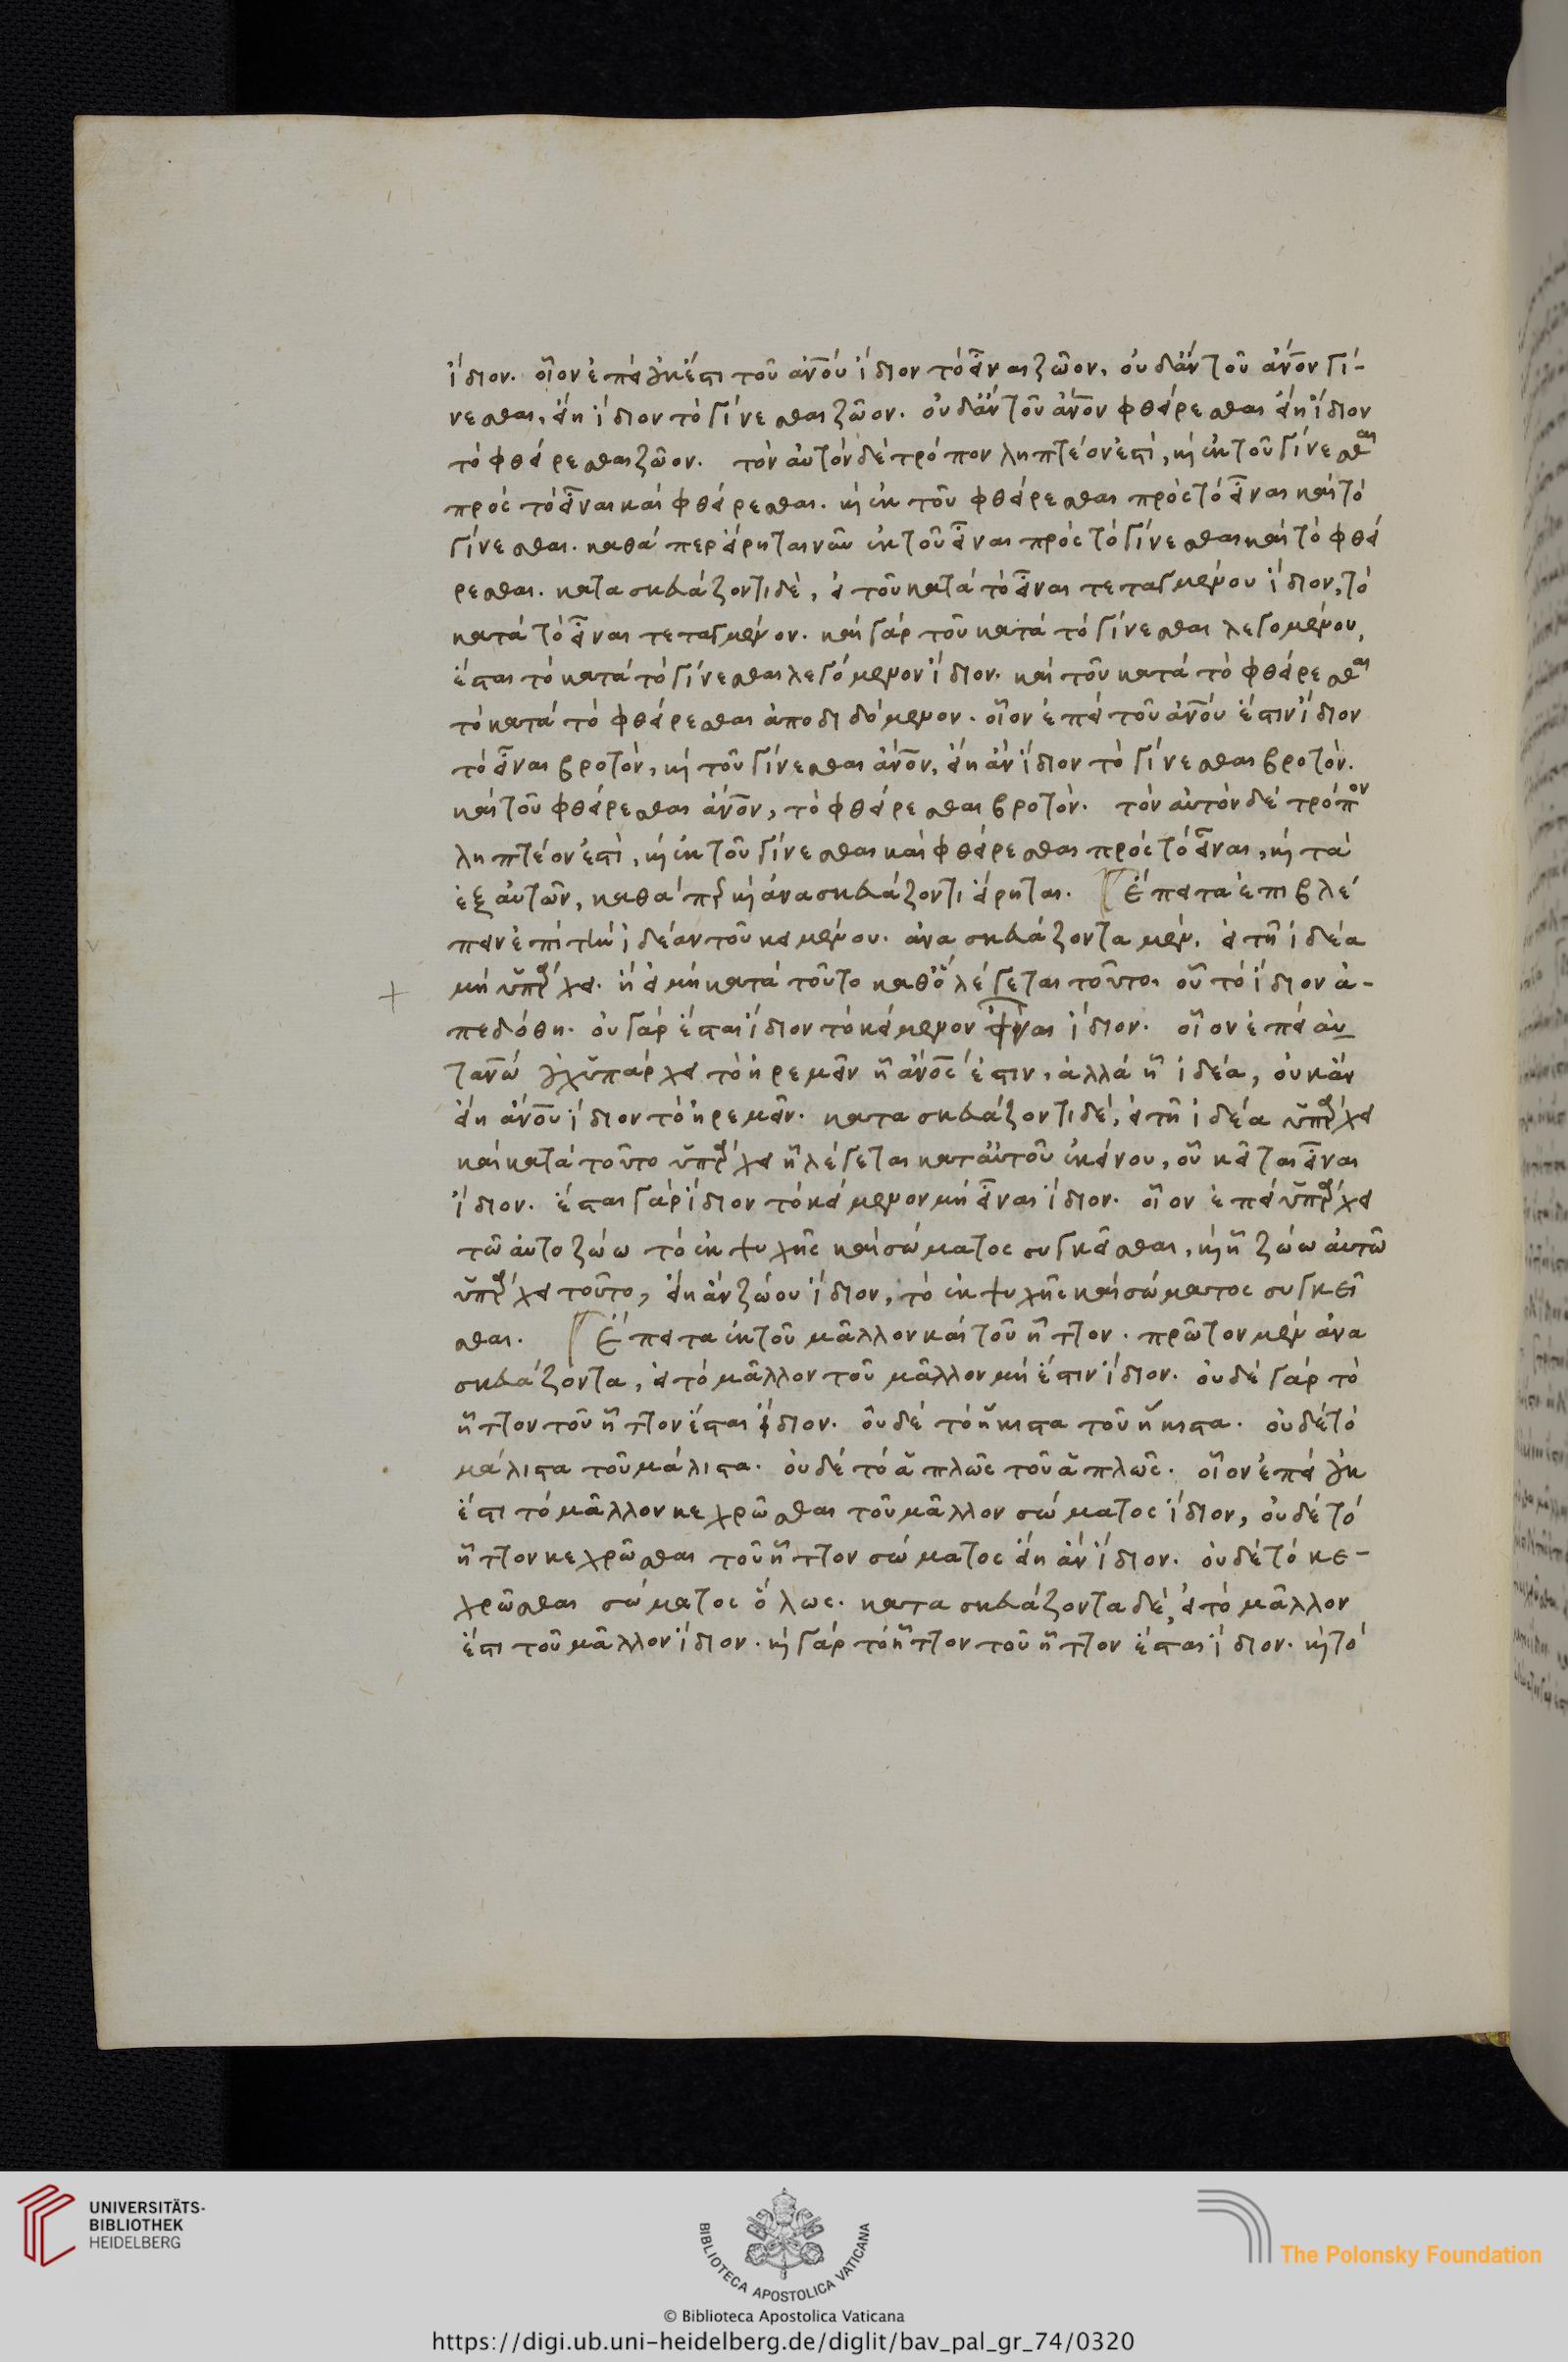 ἴδιον. οἷον ἐπεὶ οὐκ ἔστι τοῦ ἀνου ἴδιον τὸ εἶναι ζῶον, οὐδ' ἂν τοῦ ἀνον γί-
νεσθαι, εἴη ἴδιον τὸ γίνεσθαι ζῶον. οὐδ' ἂν τοῦ ἀνον φθείρεσθαι εἴη ἴδιον
τὸ φθείρεσθαι ζῶον. τὸν αὐτὸν δὲ τρόπον ληπτέον ἐστὶ, κὶ ἐκ τοῦ γίνεσθαι
πρὸς τὸ εἶναι καὶ φθείρεσθαι. κὶ ἐκ τοῦ φθείρεσθαι πρὸς τὸ εἶναι καὶ τὸ
γίνεσθαι. καθάπερ εἴρηται νῦν ἐκ τοῦ εἶναι πρὸς τὸ γίνεσθαι καὶ τὸ φθεί
ρεσθαι. κατασκευάζοντι δὲ, εἰ τοῦ κατὰ τὸ εἶναι τεταγμένου ἴδιον, τὸ
κατὰ τὸ εἶναι τεταγμένον. καὶ γὰρ τοῦ κατὰ τὸ γίνεσθαι λεγομένου,
ἔσται τὸ κατὰ τὸ γίνεσθαι λεγόμενον ἴδιον. καὶ τοῦ κατὰ τὸ φθείρεσθαι
τὸ κατὰ τὸ φθείρεσθαι ἀποδιδόμενον. οἷον ἐπεὶ τοῦ ἀνου ἔστιν ἴδιον
τὸ εἶναι βροτὸν, κὶ τοῦ γίνεσθαι ἀνον, εἴη ἂν ἴδιον τὸ γίνεσθαι βροτὸν.
καὶ τοῦ φθείρεσθαι ἀνον, τὸ φθείρεσθαι βροτὸν. τὸν αὐτὸν δὲ τρόπον
ληπτέον ἐστὶ, κὶ ἐκ τοῦ γίνεσθαι καὶ φθείρεσθαι πρὸς τὸ εἶναι, κὶ τὰ
ἐξ αὐτῶν, καθάπερ κὶ ἀνασκευάζοντι εἴρηται. Ἔπειτα ἐπιβλέ
πειν ἐπὶ τὴν ἰδέαν τοῦ κειμένου. ἀνασκευάζοντα μὲν, εἰ τῆ ἰδέα
μὴ ὑπάρχει. ἢ εἰ μὴ κατὰ τοῦτο καθ' ὃ λέγεται τοῦτο, οὗ τὸ ἴδιον ἀ-
πεδόθη. οὐ γὰρ ἔσται ἴδιον τὸ κείμενον εἶναι ἴδιον. οἷον ἐπεὶ αὐ
τανω οὐχ ὑπάρχει τὸ ἠρεμεῖν ἧ ἀνος ἐστιν, ἀλλὰ ἧ ἰδέα, οὐκ ἂν
εἴη ἀνου ἴδιον τὸ ἠρεμεῖν. κατασκευάζοντι δὲ, εἰ τῆ ἰδέα ὑπάρχει
καὶ κατὰ τοῦτο ὑπάρχει ἧ λέγεται κατ' αὐτοῦ ἐκείνου, οὗ κεῖται εἶναι
ἴδιον. ἔσται γὰρ ἴδιον τὸ κείμενον μὴ εἶναι ἴδιον. οἷον ἐπεὶ ὑπάρχει
τῶ αὐτοζώω τὸ ἐκ ψυχῆς καὶ σώματος συγκεῖσθαι, κὶ ἧ ζώω αὐτῶ
ὑπάρχει τοῦτο, εἴη ἂν ζώου ἴδιον, τὸ ἐκ ψυχῆς καὶ σώματος συγκεῖ
σθαι. Ἔπειτα ἐκ τοῦ μᾶλλον καὶ τοῦ ἧττον. πρῶτον μὲν ἀνα
σκευάζοντα, εἰ τὸ μᾶλλον τοῦ μᾶλλον μὴ ἔστιν ἴδιον. οὐδὲ γὰρ τὸ
ἧττον τοῦ ἧττον ἔσται ἴδιον. οὐδὲ τὸ ἥκιστα τοῦ ἥκιστα. οὐδὲ τὸ
μάλιστα τοῦ μάλιστα. οὐδὲ τὸ ἁπλῶς τοῦ ἁπλῶς. οἷον ἐπεὶ οὐκ
ἔστι τὸ μᾶλλον κεχρῶσθαι τοῦ μᾶλλον σώματος ἴδιον, οὐδὲ τὸ
ἧττον κεχρῶσθαι τοῦ ἧττον σώματος εἴη ἂν ἴδιον. οὐδὲ τὸ κε-
χρῶσθαι σώματος ὅλως. κατασκευάζοντα δὲ, εἰ τὸ μᾶλλον
ἔστι τοῦ μᾶλλον ἴδιον. κὶ γὰρ τὸ ἧττον τοῦ ἧττον ἔσται ἴδιον. κὶ τὸ
UNIVERSITÄTS-
BIBLIOTHEK
HEIDELBERG
BIBLIOTECA APOSTOLICA VATICANA
The Polonsky Foundation
© Biblioteca Apostolica Vaticana
https://digi.ub.uni-heidelberg.de/diglit/bav_pal_gr_74/0320